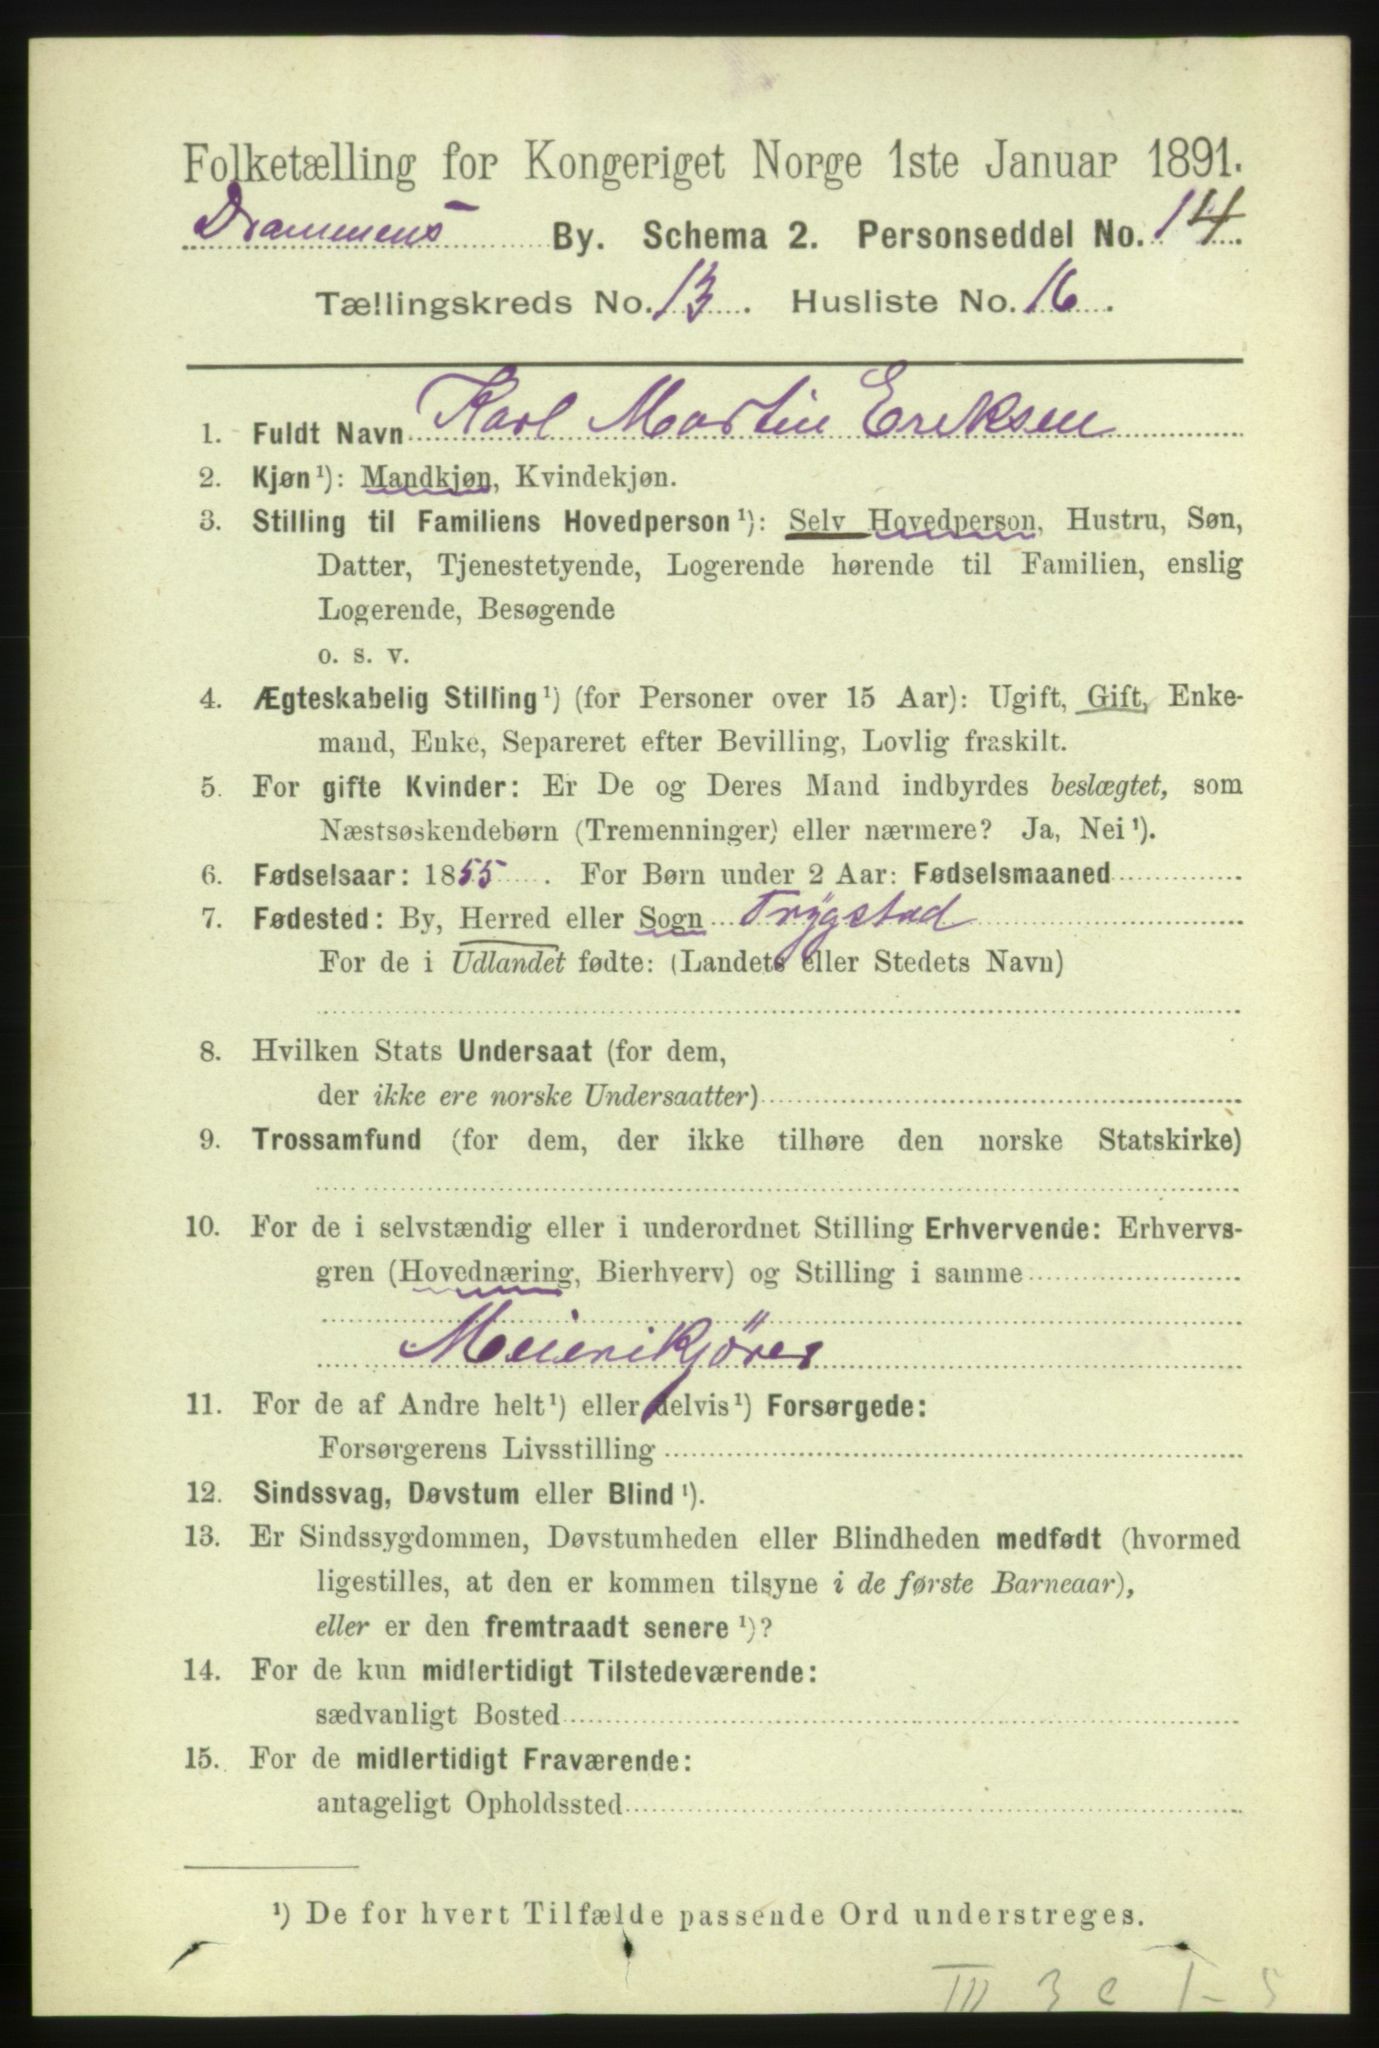 Folketælling for Kongeriget Norge 1ste Januar 1891.
Drammens By. Schema 2. Personseddel No. 14
Tællingskreds No. 13. Husliste No. 16.
1. Fuldt Navn Karl Martin Eriksen
2. Kjøn¹): Mandkjøn, Kvindekjøn.
3. Stilling til Familiens Hovedperson¹): Selv Hovedperson, Hustru, Søn,
Datter, Tjenestetyende, Logerende hørende til Familien, enslig
Logerende, Besøgende
o. s. v.
4. Ægteskabelig Stilling¹) (for Personer over 15 Aar): Ugift, Gift, Enke-
mand, Enke, Separeret efter Bevilling, Lovlig fraskilt.
5. For gifte Kvinder: Er De og Deres Mand indbyrdes beslægtet, som
Næstsøskendebørn (Tremenninger) eller nærmere? Ja, Nei¹).
6. Fødselsaar: 1855. For Børn under 2 Aar: Fødselsmaaned
7. Fødested: By, Herred eller Sogn Trygstad
For de i Udlandet fødte: (Landets eller Stedets Navn)
8. Hvilken Stats Undersaat (for dem,
der ikke ere norske Undersaatter)
9. Trossamfund (for dem, der ikke tilhøre den norske Statskirke)
10. For de i selvstændig eller i underordnet Stilling Erhvervende: Erhvervs-
gren (Hovednæring, Bierhverv) og Stilling i samme
Meierikjører
11. For de af Andre helt¹) eller delvis¹) Forsørgede:
Forsørgerens Livsstilling
12. Sindssvag, Døvstum eller Blind¹).
13. Er Sindssygdommen, Døvstumheden eller Blindheden medfødt (hvormed
ligestilles, at den er kommen tilsyne i de første Barneaar),
eller er den fremtraadt senere¹)?
14. For de kun midlertidigt Tilstedeværende:
sædvanligt Bosted
15. For de midlertidigt Fraværende:
antageligt Opholdssted
¹) De for hvert Tilfælde passende Ord understreges.
III 3 c I-5